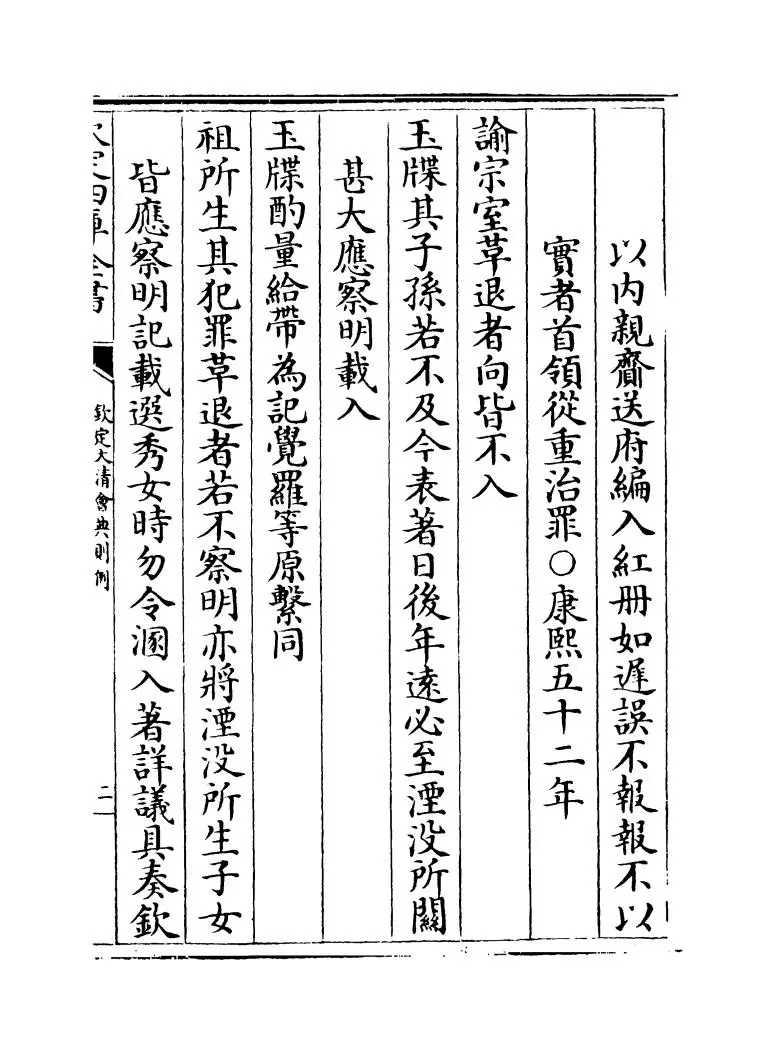 以内親齎送府編入紅册如遲誤不報報不以
實者首領從重治罪○康熙五十二年
諭宗室革退者向皆不入
玉牒其子孫若不及今表著日後年逺必至湮没所關
甚大應察明載入
玉牒酌量給帶為記覺羅等原繫同
祖所生其犯罪革退者若不察明亦將湮没所生子女
皆應察明記載選秀女時勿令溷入著詳議具奏欽
欽定四庫全書
欽定大清會典則例
二